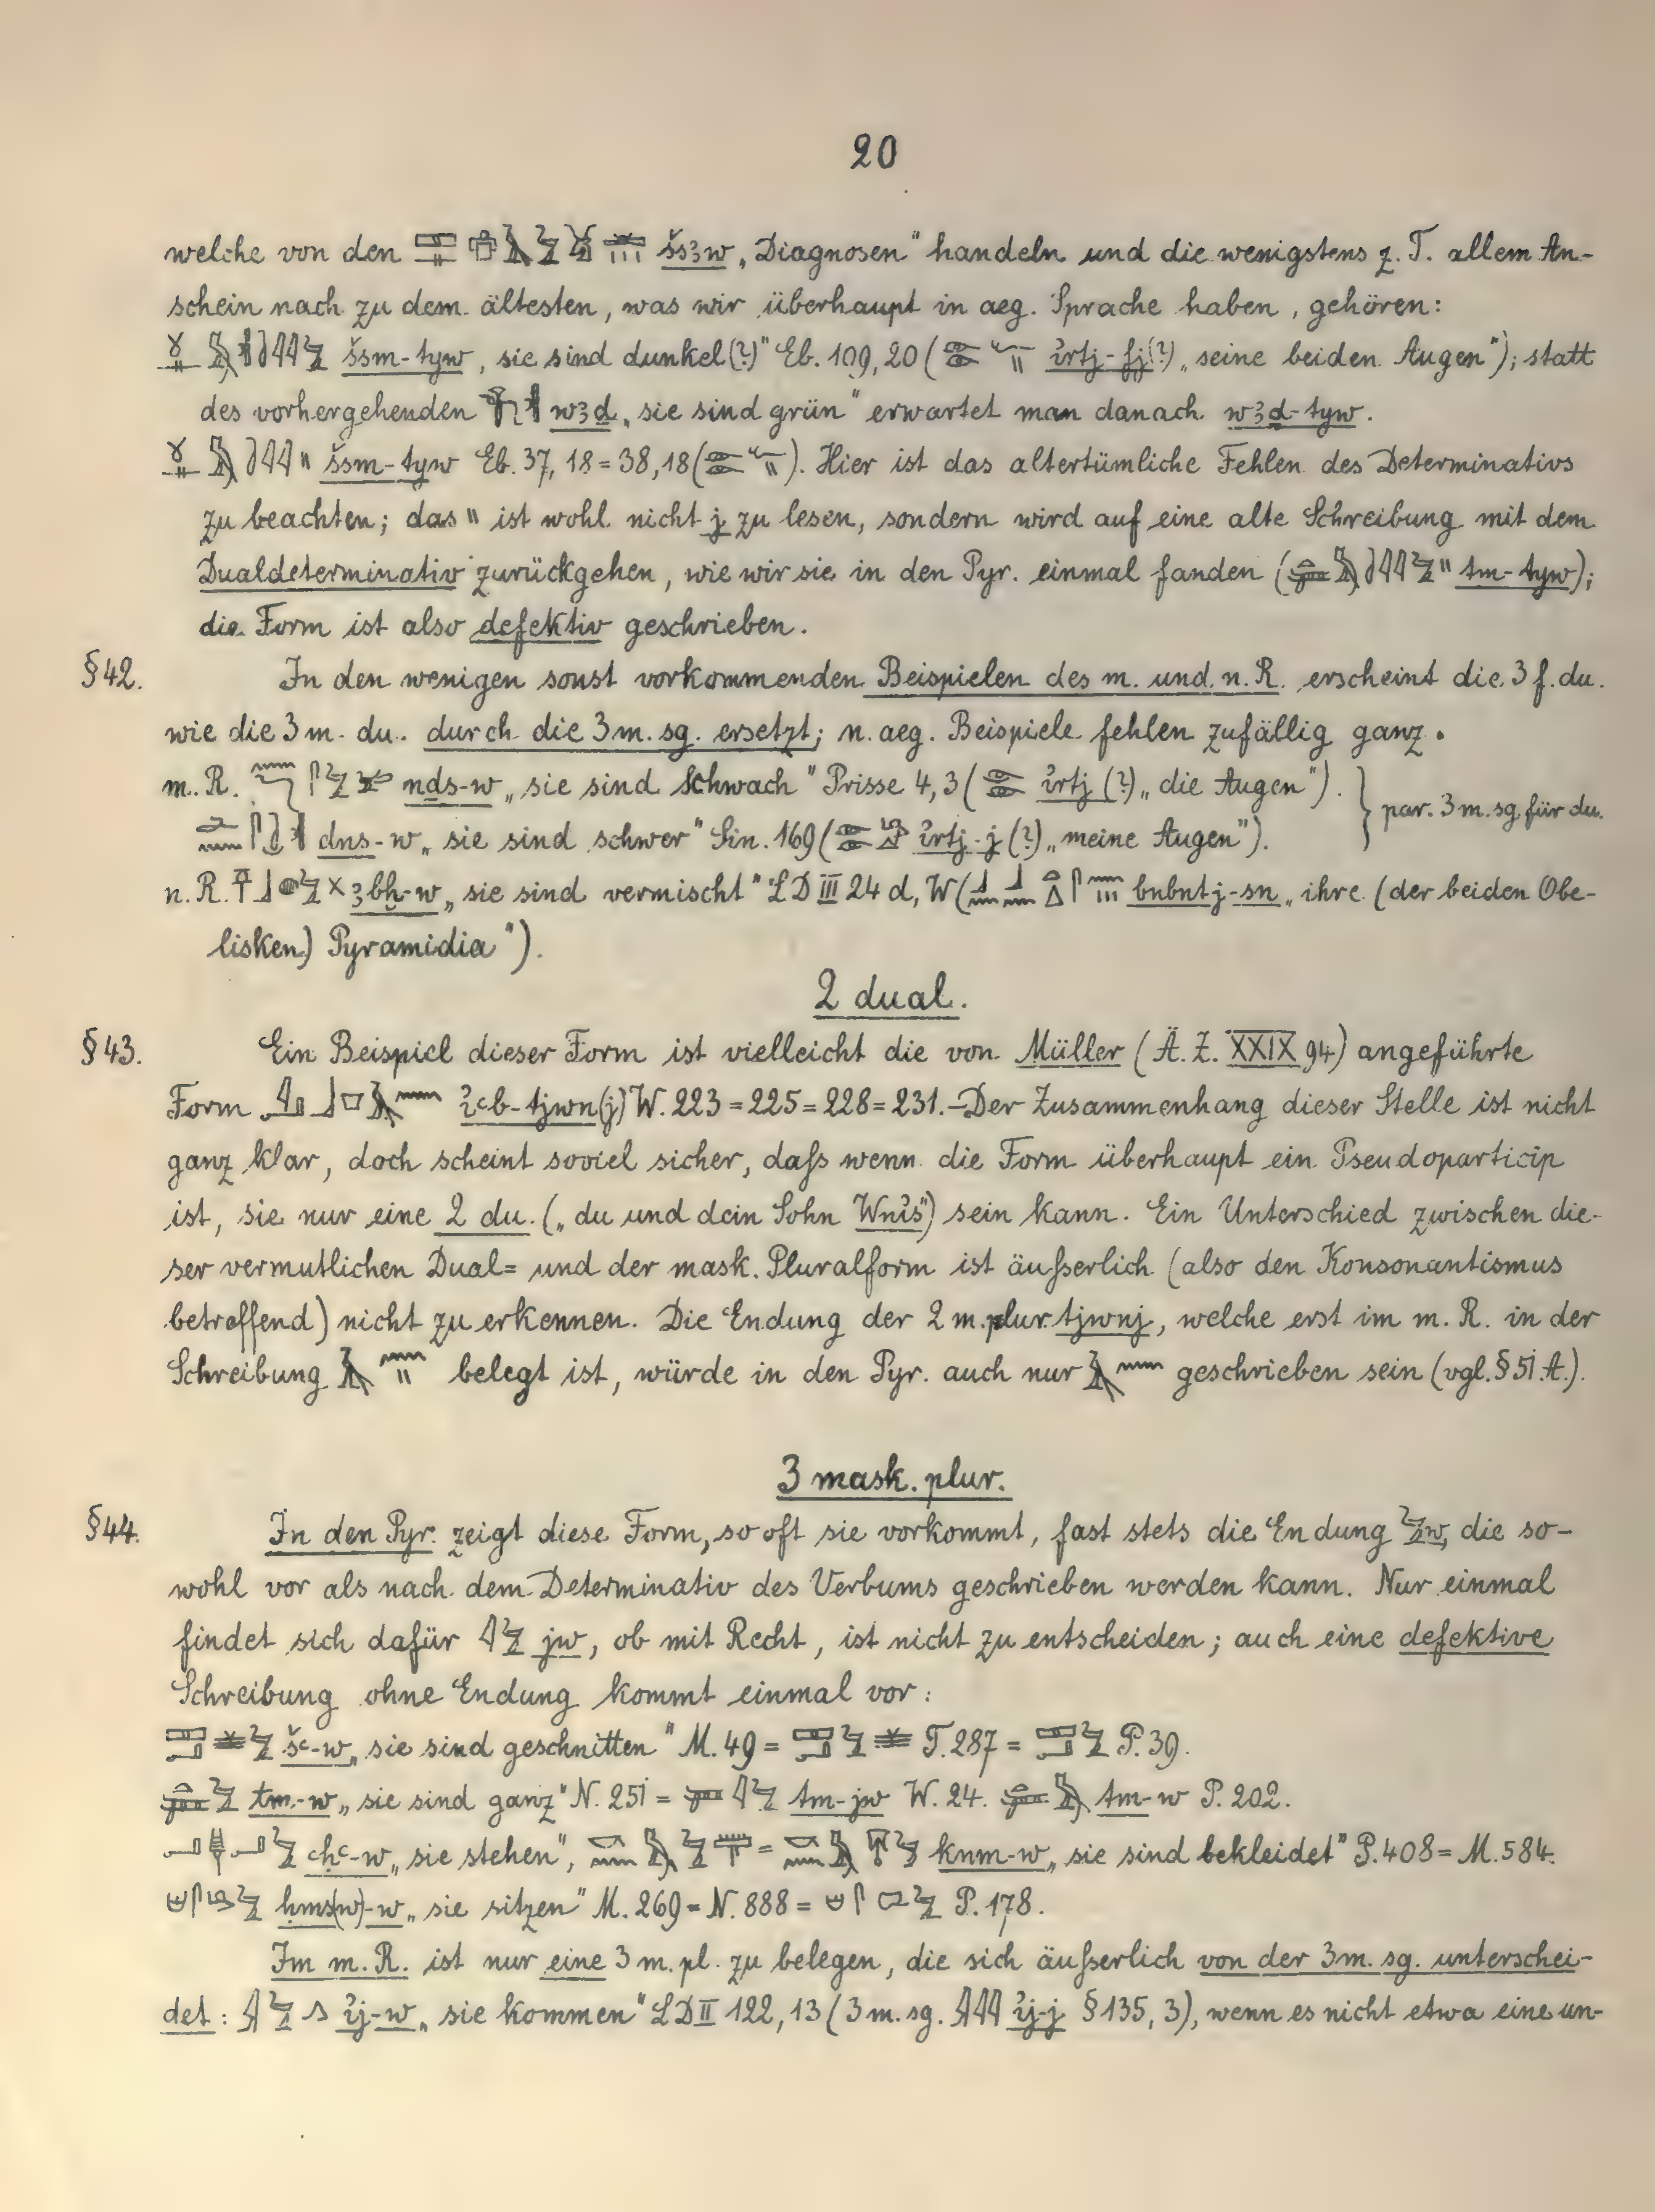 20
welche von den šs3w „Diagnosen“ handeln und die wenigstens z. T. allem An-
schein nach zu dem ältesten, was wir überhaupt in aeg. Sprache haben, gehören:
šsm-tyw „sie sind dunkel(?)“ Eb. 109, 20 ( ỉrtj-fj(?) „seine beiden Augen“); statt
des vorhergehenden w3d „sie sind grün“ erwartet man danach w3d-tyw.
šsm-tyw Eb. 37, 18 = 38, 18 ( ). Hier ist das altertümliche Fehlen des Determinativs
zu beachten; das \\ ist wohl nicht j zu lesen, sondern wird auf eine alte Schreibung mit dem
Dualdeterminativ zurückgehen, wie wir sie in den Pyr. einmal fanden ( tm-tyw);
die Form ist also defektiv geschrieben.
§42. In den wenigen sonst vorkommenden Beispielen des m. und n. R. erscheint die 3 f. du.
wie die 3 m. du. durch die 3 m. sg. ersetzt; n. aeg. Beispiele fehlen zufällig ganz.
m. R. nḏs-w „sie sind schwach“ Prisse 4, 3 ( ỉrtj (?) „die Augen“).
dns-w „sie sind schwer“ Sin. 169 ( ỉrtj-j (?) „meine Augen“). } par. 3 m. sg. für du.
n. R. 3bḫ-w „sie sind vermischt“ LD III 24 d, W ( bnbntj-sn „ihre (der beiden Obe-
lisken) Pyramidia“).
2 dual.
§43. Ein Beispiel dieser Form ist vielleicht die von Müller (Ä. Z. XXIX 94) angeführte
Form ỉcb-tjwn(j) W. 223 = 225 = 228 = 231. – Der Zusammenhang dieser Stelle ist nicht
ganz klar, doch scheint soviel sicher, daſs wenn die Form überhaupt ein Pseudoparticip
ist, sie nur eine 2 du. („du und dein Sohn Wnỉs“) sein kann. Ein Unterschied zwischen die-
ser vermutlichen Dual= und der mask. Pluralform ist äuſserlich (also den Konsonantismus
betreffend) nicht zu erkennen. Die Endung der 2 m. plur. tjwnj, welche erst im m. R. in der
Schreibung belegt ist, würde in den Pyr. auch nur geschrieben sein (vgl. § 51 A.).
3 mask. plur.
§44. In den Pyr. zeigt diese Form, so oft sie vorkommt, fast stets die Endung w, die so-
wohl vor als nach dem Determinativ des Verbums geschrieben werden kann. Nur einmal
findet sich dafür jw, ob mit Recht, ist nicht zu entscheiden; auch eine defektive
Schreibung ohne Endung kommt einmal vor:
šc-w „sie sind geschnitten“ M. 49 = T. 287 = P. 39.
tm-w „sie sind ganz“ N. 251 = tm-jw W. 24. tm-w P. 202.
cḥc-w „sie stehen“, = knm-w „sie sind bekleidet“ P. 408 = M. 584.
ḥms(w)-w „sie sitzen“ M. 269 = N. 888 = P. 178.
Im m. R. ist nur eine 3 m. pl. zu belegen, die sich äuſserlich von der 3 m. sg. unterschei-
det: ỉj-w „sie kommen“ LD II 122, 13 (3 m. sg. ỉj-j § 135, 3), wenn es nicht etwa eine un-